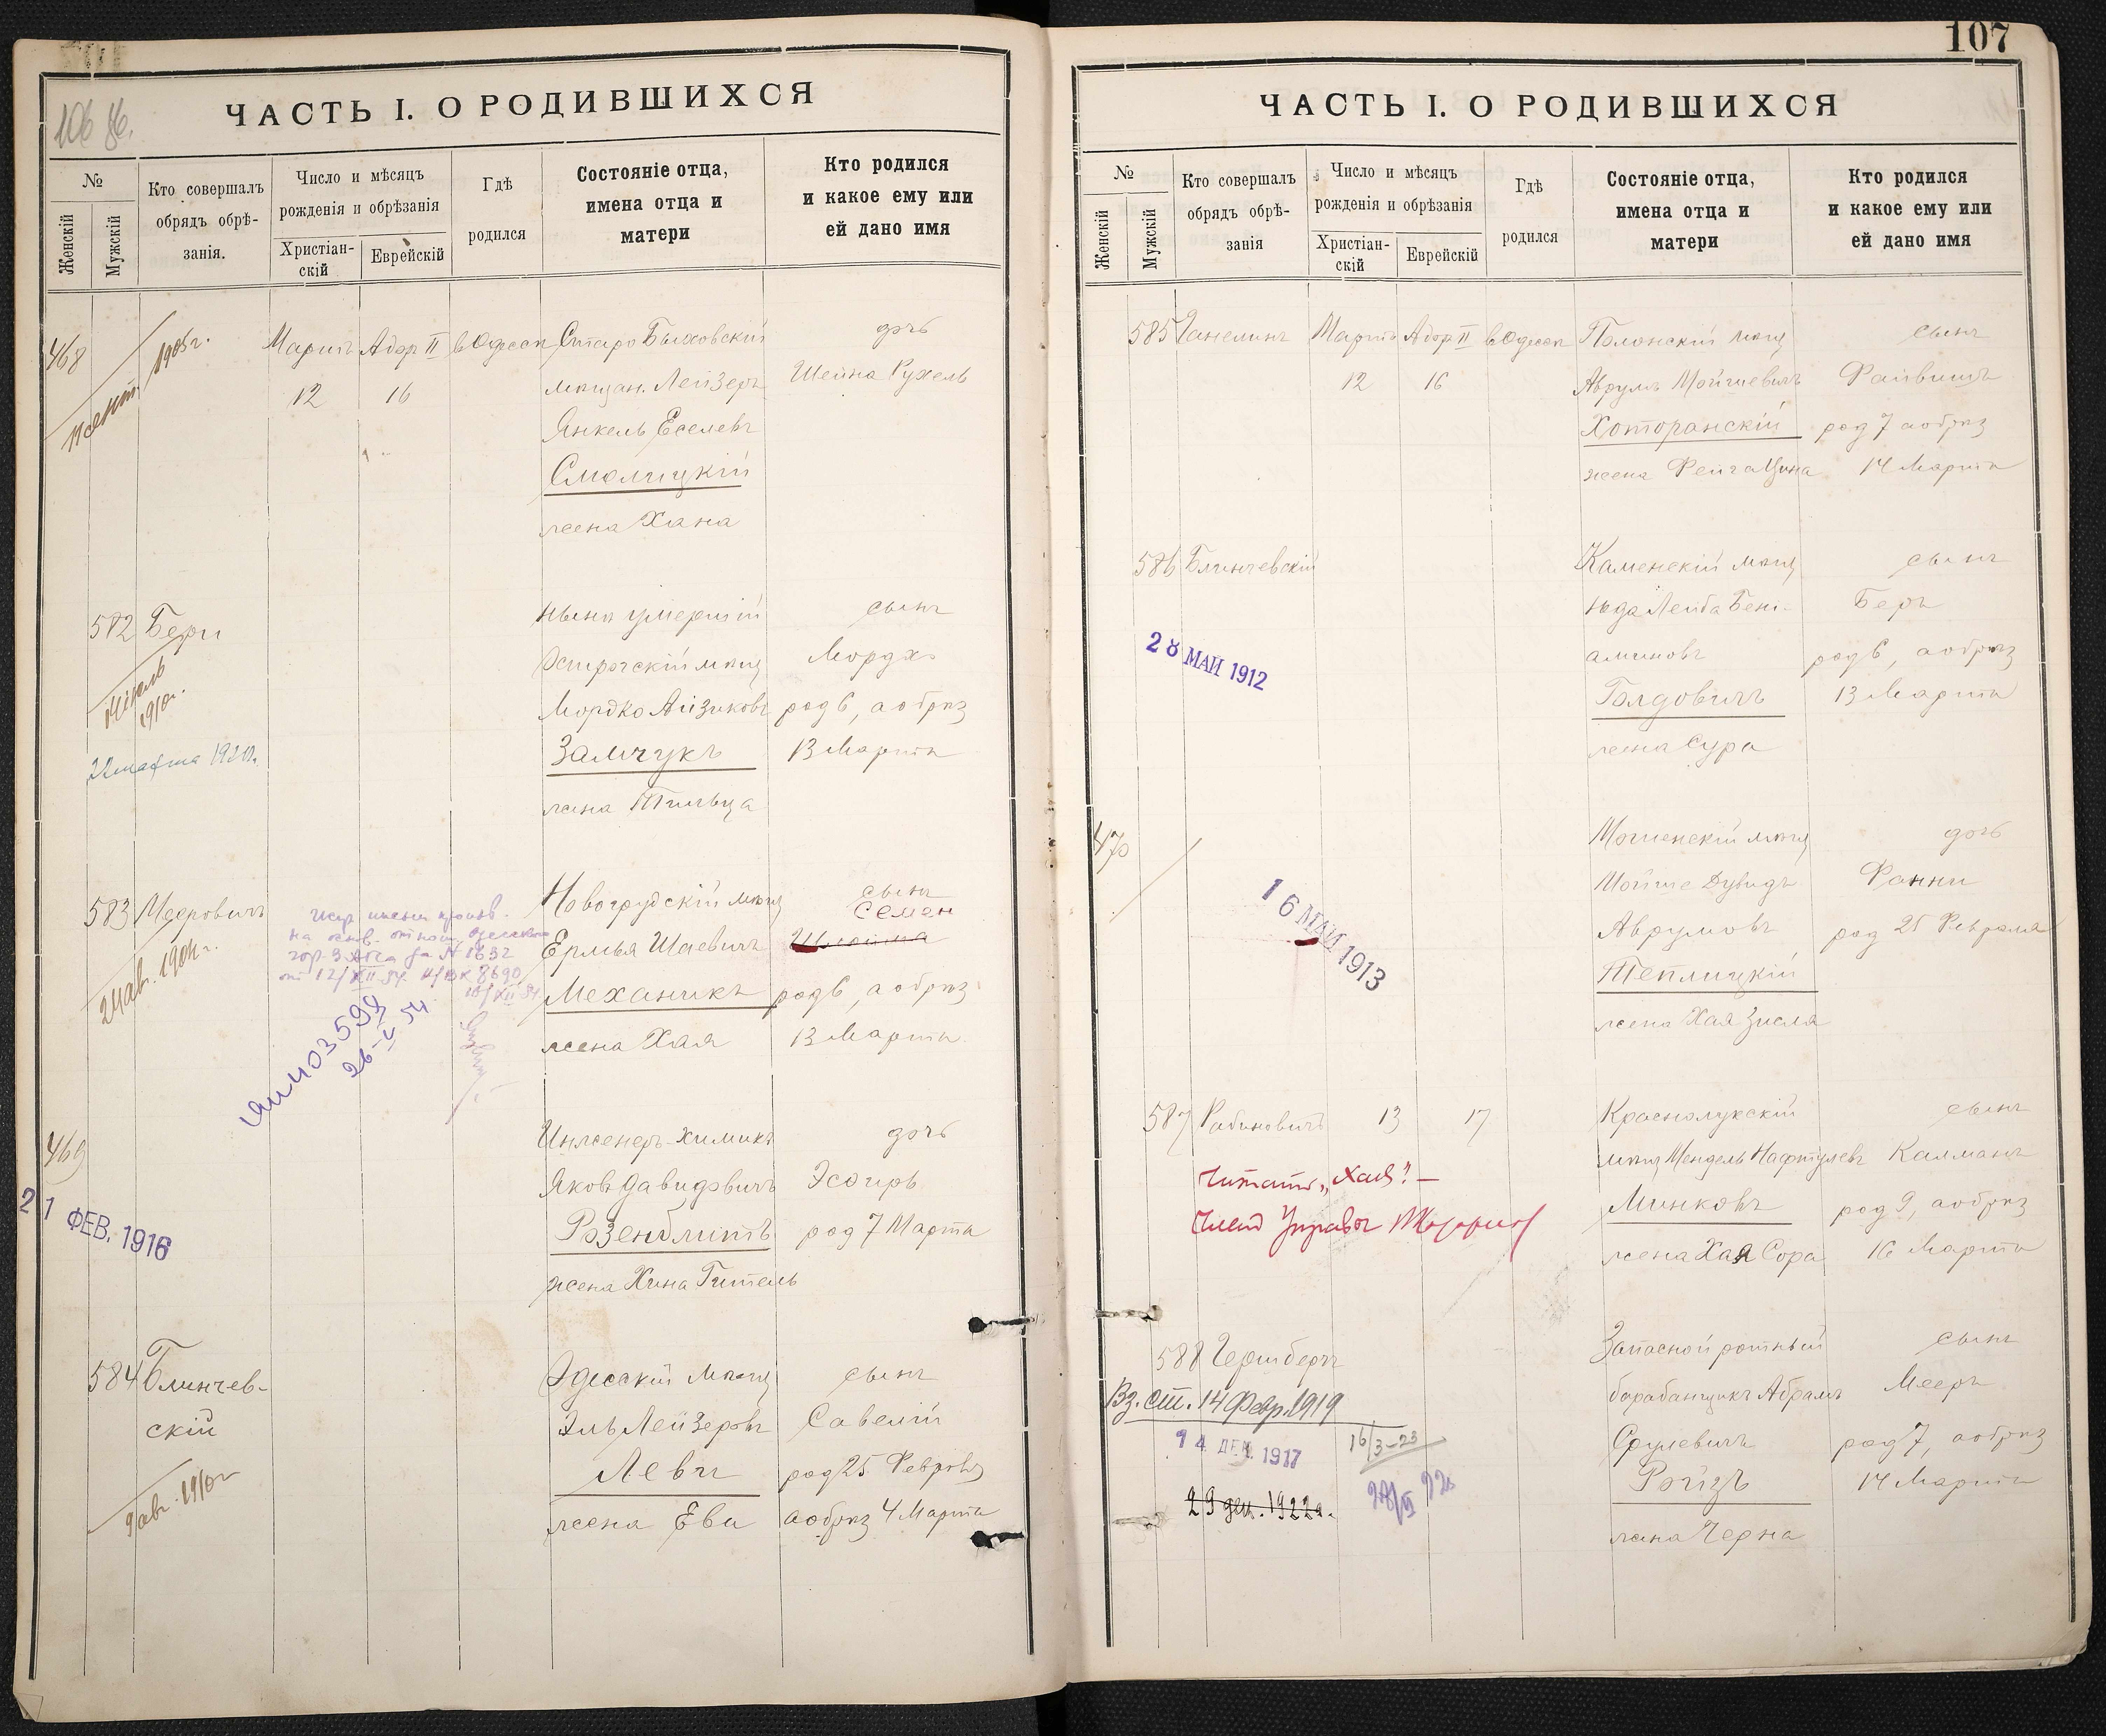 106 об.
ЧАСТЬ I. О РОДИВШИХСЯ
№
Женскій
Мужскій
Кто совершалъ обрядъ обрѣ-занія.
Число и мѣсяцъ рожденія и обрѣзанія
Христіан-скій
Еврейскій
Гдѣ родился
Состояніе отца, имена отца и матери
Кто родился и какое ему или ей дано имя
468
11 сент. 1905 г.
Мартъ
12
Адор II
16
в Одессѣ
Старо Быховскій
мѣщан. Лейзеръ
Янкель Еселевъ
Смолицкій
жена Хана
дочь
Шейна Рухель
582
Бери
1910г.
22 марта 1920г.
нынѣ умершій
Острогскій мѣщ
Мордко Айзиковъ
Замчукъ
жена
сынъ
Мордхо
род 6, а обрѣз
13 Марта
583
Мееровичъ
24 авг. 1904 г.
гор. ЗАГСа за № 1632
от 12/XII-54
26-V 54
Новогрудскій мѣщ
Ермья Шаевичъ
Механикъ
жена Хая
сынъ
Семен
род 6, а обрѣз
13 Марта
469
21 ФЕВ. 1916
Инженеръ-химикъ
Яковъ Давидовичъ
Розенблитъ
жена Хина Гитель
дочь
Эсөирь
род 7 Марта
584
Блинчев-
скій
9 авг. 1910г
Одесскій мѣщ
Эль Лейзеровъ
Левъ
жена Ева
сынъ
Савелій
род 25 Февраля
а обрѣз 4 Марта
107
ЧАСТЬ I. О РОДИВШИХСЯ
№
Женскій
Мужскій
Кто совершалъ обрядъ обрѣ-занія
Число и мѣсяцъ рожденія и обрѣзанія
Христіан-скій
Еврейскій
Гдѣ родился
Состояніе отца, имена отца и матери
Кто родился и какое ему или ей дано имя
585
Ганелинъ
Мартъ
12
Адор II
16
в Одессѣ
Полонскій мѣщ
Аврумъ Мойшевичъ
Хоторанскій
жена Фейга Цина
сынъ
Файвишъ
род 7 а обрѣз
14 Марта
586
Блинчевскій
28 МАЙ 1912
Каменскій мѣщ
Юда Лейба Бені-
аминовъ
Голдовичъ
жена Сура
сынъ
Беръ
род 6, а обрѣз
13 Марта
470
16 МАЙ 1913
мѣщ
Мойше Дувидъ
Аврумовъ
Теплицкій
жена Хая Зисля
дочь
Фанни
род 25 Февраля
587
Рабиновичъ
13
17
Читать „Хая" —
Членъ Управы
Краснолукскій
мѣщ Мендель Нафтулевъ
Минковъ
жена Хая Сора
сынъ
Калманъ
род 9, а обрѣз
16 Марта
588
Гершбергъ
Вз. ст. 14 Февр. 1919
14 ДЕК. 1917
16/3-23
29 дек. 1922г.
Запасной ротный
барабанщикъ Абрамъ
Срулевичъ
Ройзъ
жена Черна
сынъ
Мееръ
род 7, а обрѣз
14 Марта